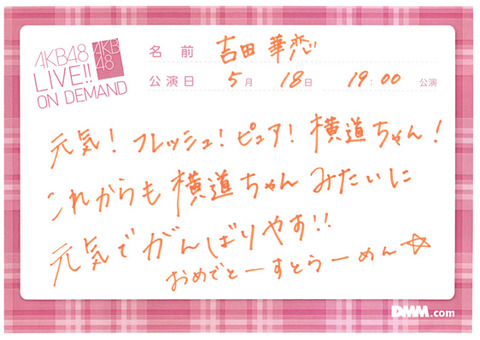 AKB48
LIVE!!
ON DEMAND
AKB
48
名 前 吉田 華恋
公演日 5月 18日 19:00 公演
元気！フレッシュ！ピュア！横道ちゃん！
これからも横道ちゃんみたいに
元気でがんばりやす!!
おめでとーすとらーめん☆
DMM.com